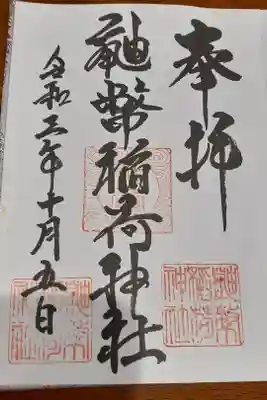 奉拝
鼬幣稲荷神社
令和三年十月五日